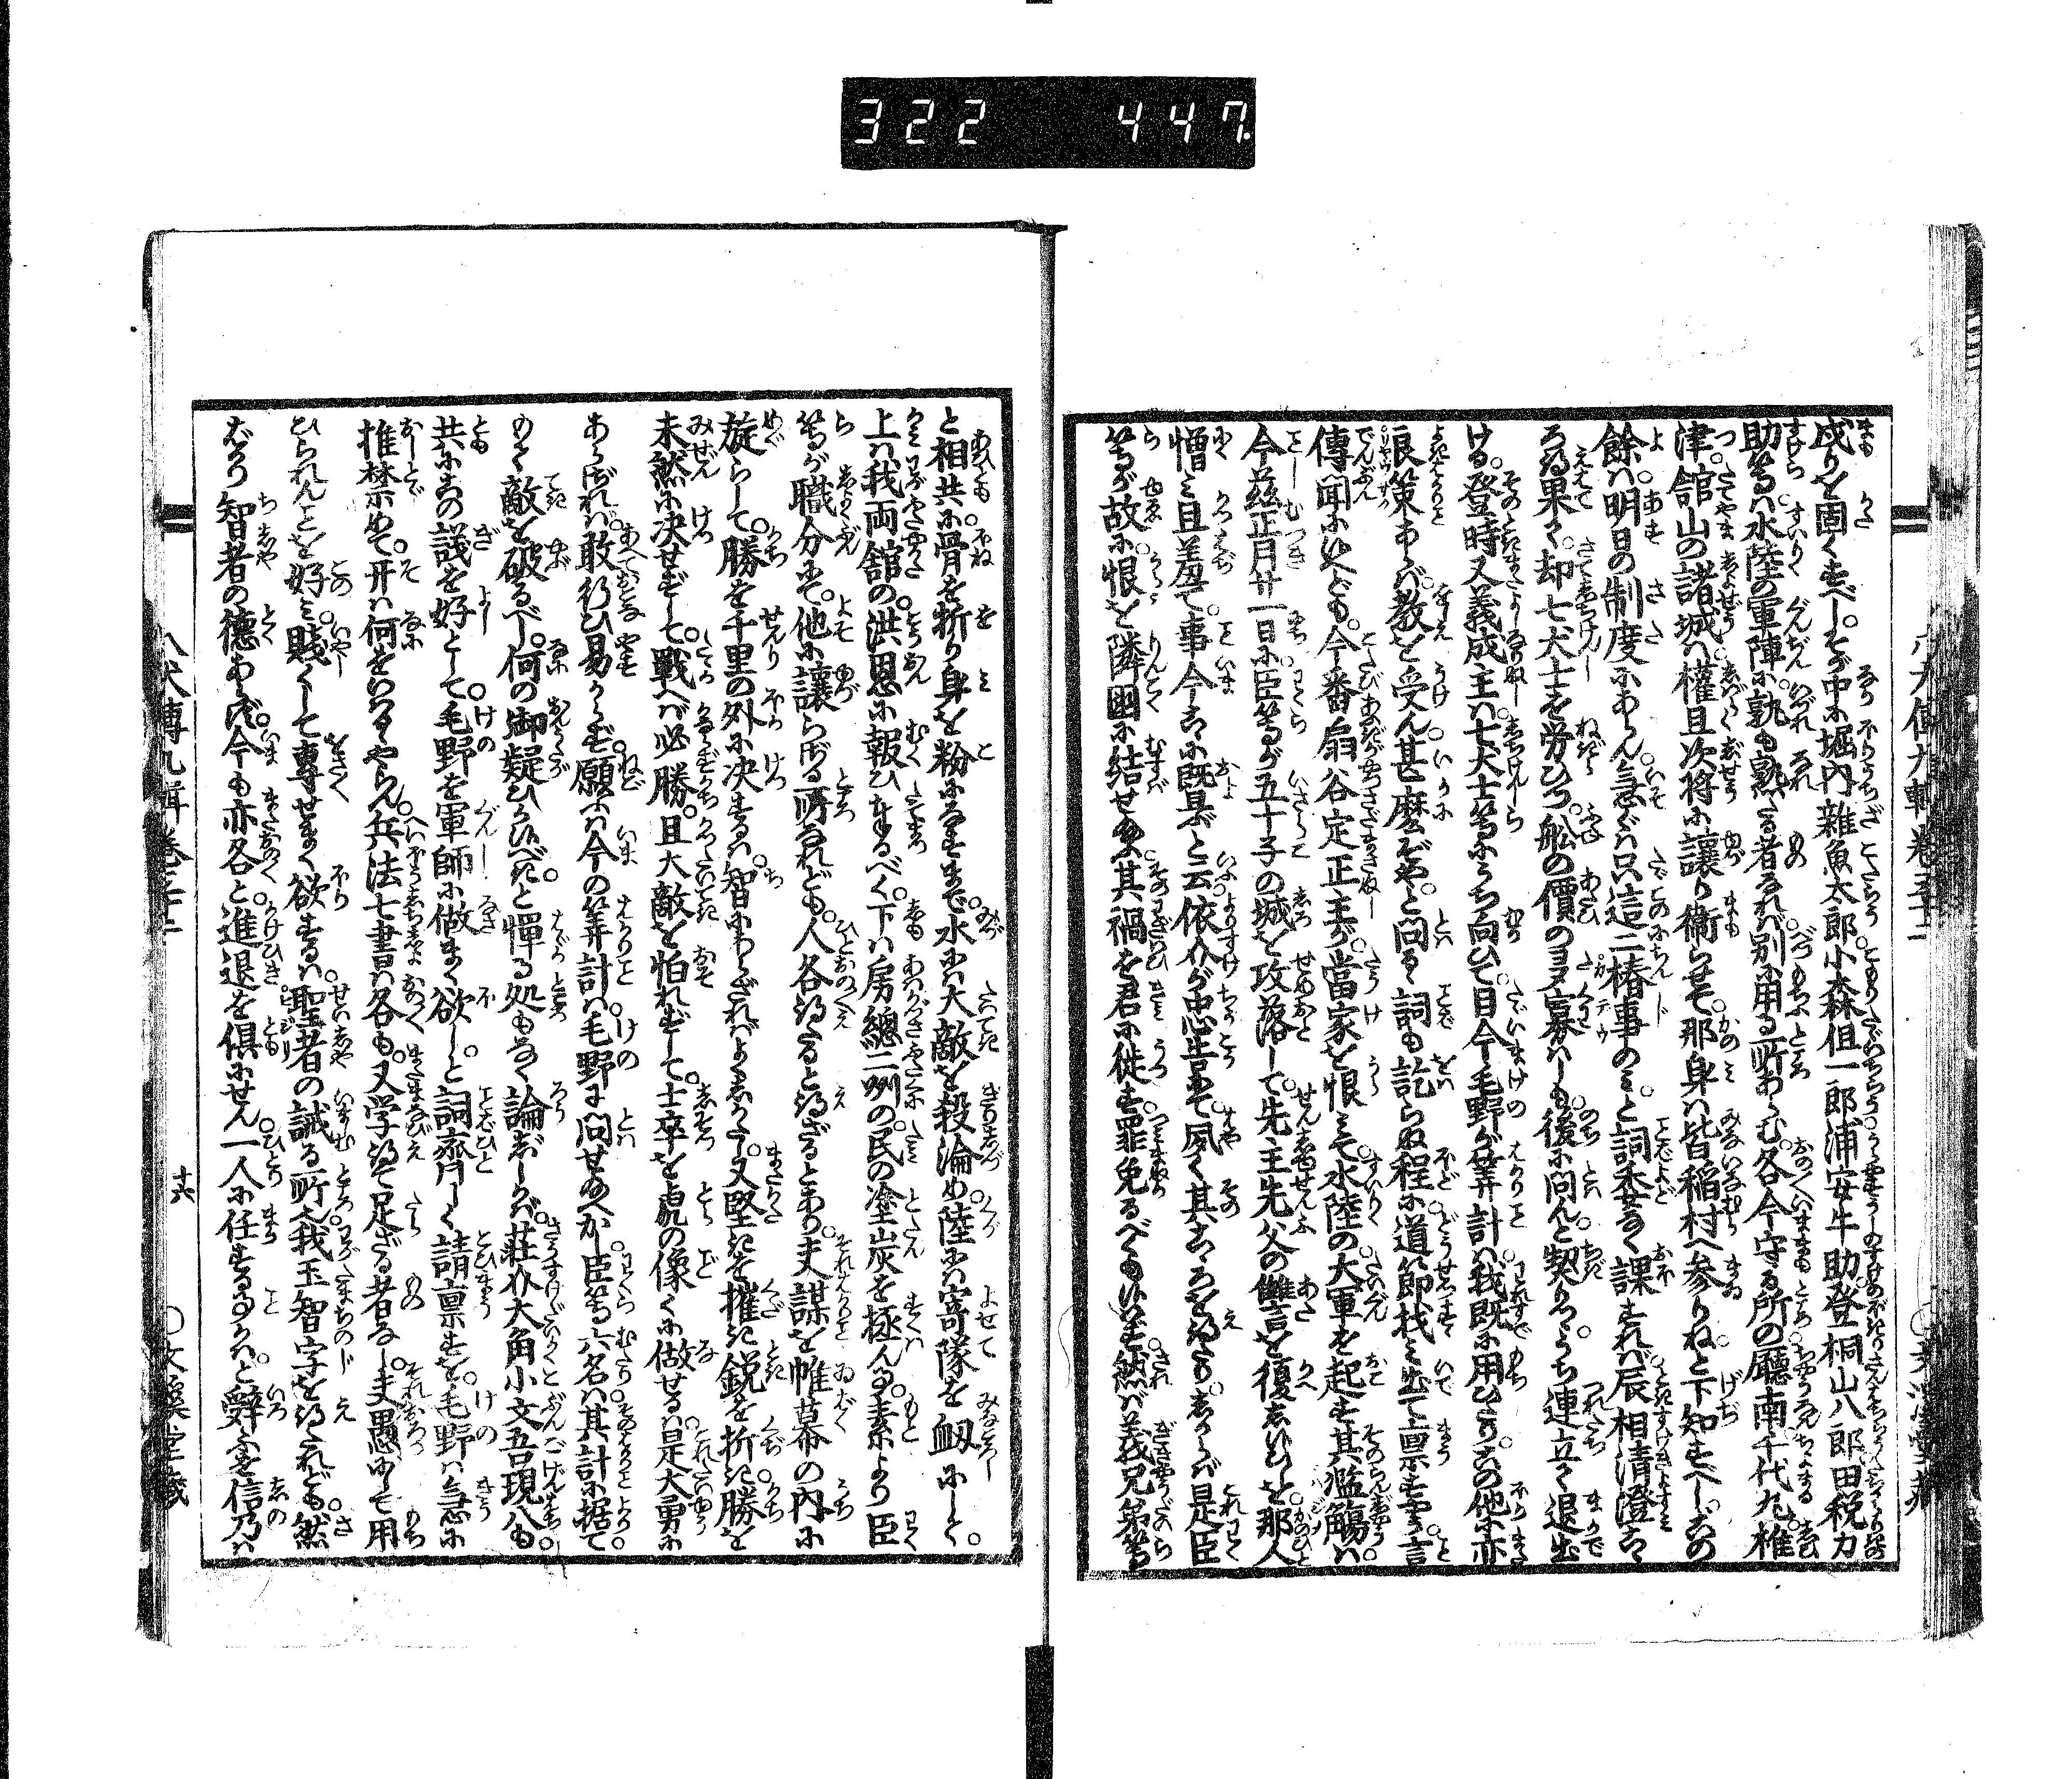 322 447.
戍りを固くすべし。その中に堀内雑魚太郎。小森但一郎浦安牛助登桐山八郎田税力
助等は水陸の軍陣に。孰も熟たる者なれば。別に用る所あらむ。各今守る所の廳南千代丸。椎
津。舘山の諸城は。權且次將に讓り衞らせて。那身は皆稲村へ参りねと下知すべし。この
餘は明日の制度にあらん。急ぐは只這二椿事のみと詞委なく課すれば。辰相清澄こゝ
ろ得果て。却七犬士を労ひつ。舩の價の多寡はしも。後に問んと契りつゝ。うち連立て退出
ける。登時又義成主は。七犬士等にうち向ひて。目今毛野が筭計は。我既に用ひたり。この他に亦
良策あらば。教を受ん甚麼ぞや。と問るゝ詞も訖らぬ程に。道節找み出て稟すやう。言
傳聞に候へども。今番扇谷定正主が。當家を恨みて水陸の大軍を起す。其濫觴は。
今茲正月廿一日に。臣等が五十子の城を攻落して。先主先父の讐言を復したりしを。那人
憎み且羞て。事今こゝに既ぶと云。依介が忠告にて。夙く其こゝろを得たり。しからば是臣
等が故に。恨を隣國に結せ給ふ。其禍を君に徙す。罪免るべくも候はず。然ば義兄弟等
と相共に。骨を折り身を粉になすまで。水には大敵を殺淪め。陸には寄隊を衂にして。
上は我両舘の。洪恩に報ひまつるべく。下は房總二州の。民の塗炭を極はん事。素より臣
等が職分にて。他に讓らざる所なれども。人各得たると得ざるとあり。夫謀を帷幕の内に
旋らして。勝を千里の外に决するは。智にあらざればよくしがたし。又堅きを摧き鋭を折き。勝を
未然に决せずして。戰へば必勝。且大敵を怕れずして。士卒を虎の像くに做せるは。是大勇に
あらざれば。敢行ひ易からず。願ふは今の筭計は。毛野に問せ給へかし。臣等六名は。其計に据て。
のみ敵を破るべし。何の御疑ひか候べき。と憚る処もなく論ぜしかば。莊介大角小文吾現八も。
共にこの議を好として。毛野を軍師に做まく欲し。と詞齊しく請稟すを。毛野は急に
推禁めて。开は何をいはるゝやらん。兵法七書は各も。又学得て足ざる者なし。夫愚にして用
ひられんことを好み。賎くして專せまく欲するは。聖者の誡る所。我玉智字を得たれども。然
ばかり智者の德あらず。今も亦各と。進退を倶にせん。一人に任する事かは。と辭ふを信乃は
八犬傳九輯卷三十二
十六
○文溪堂藏